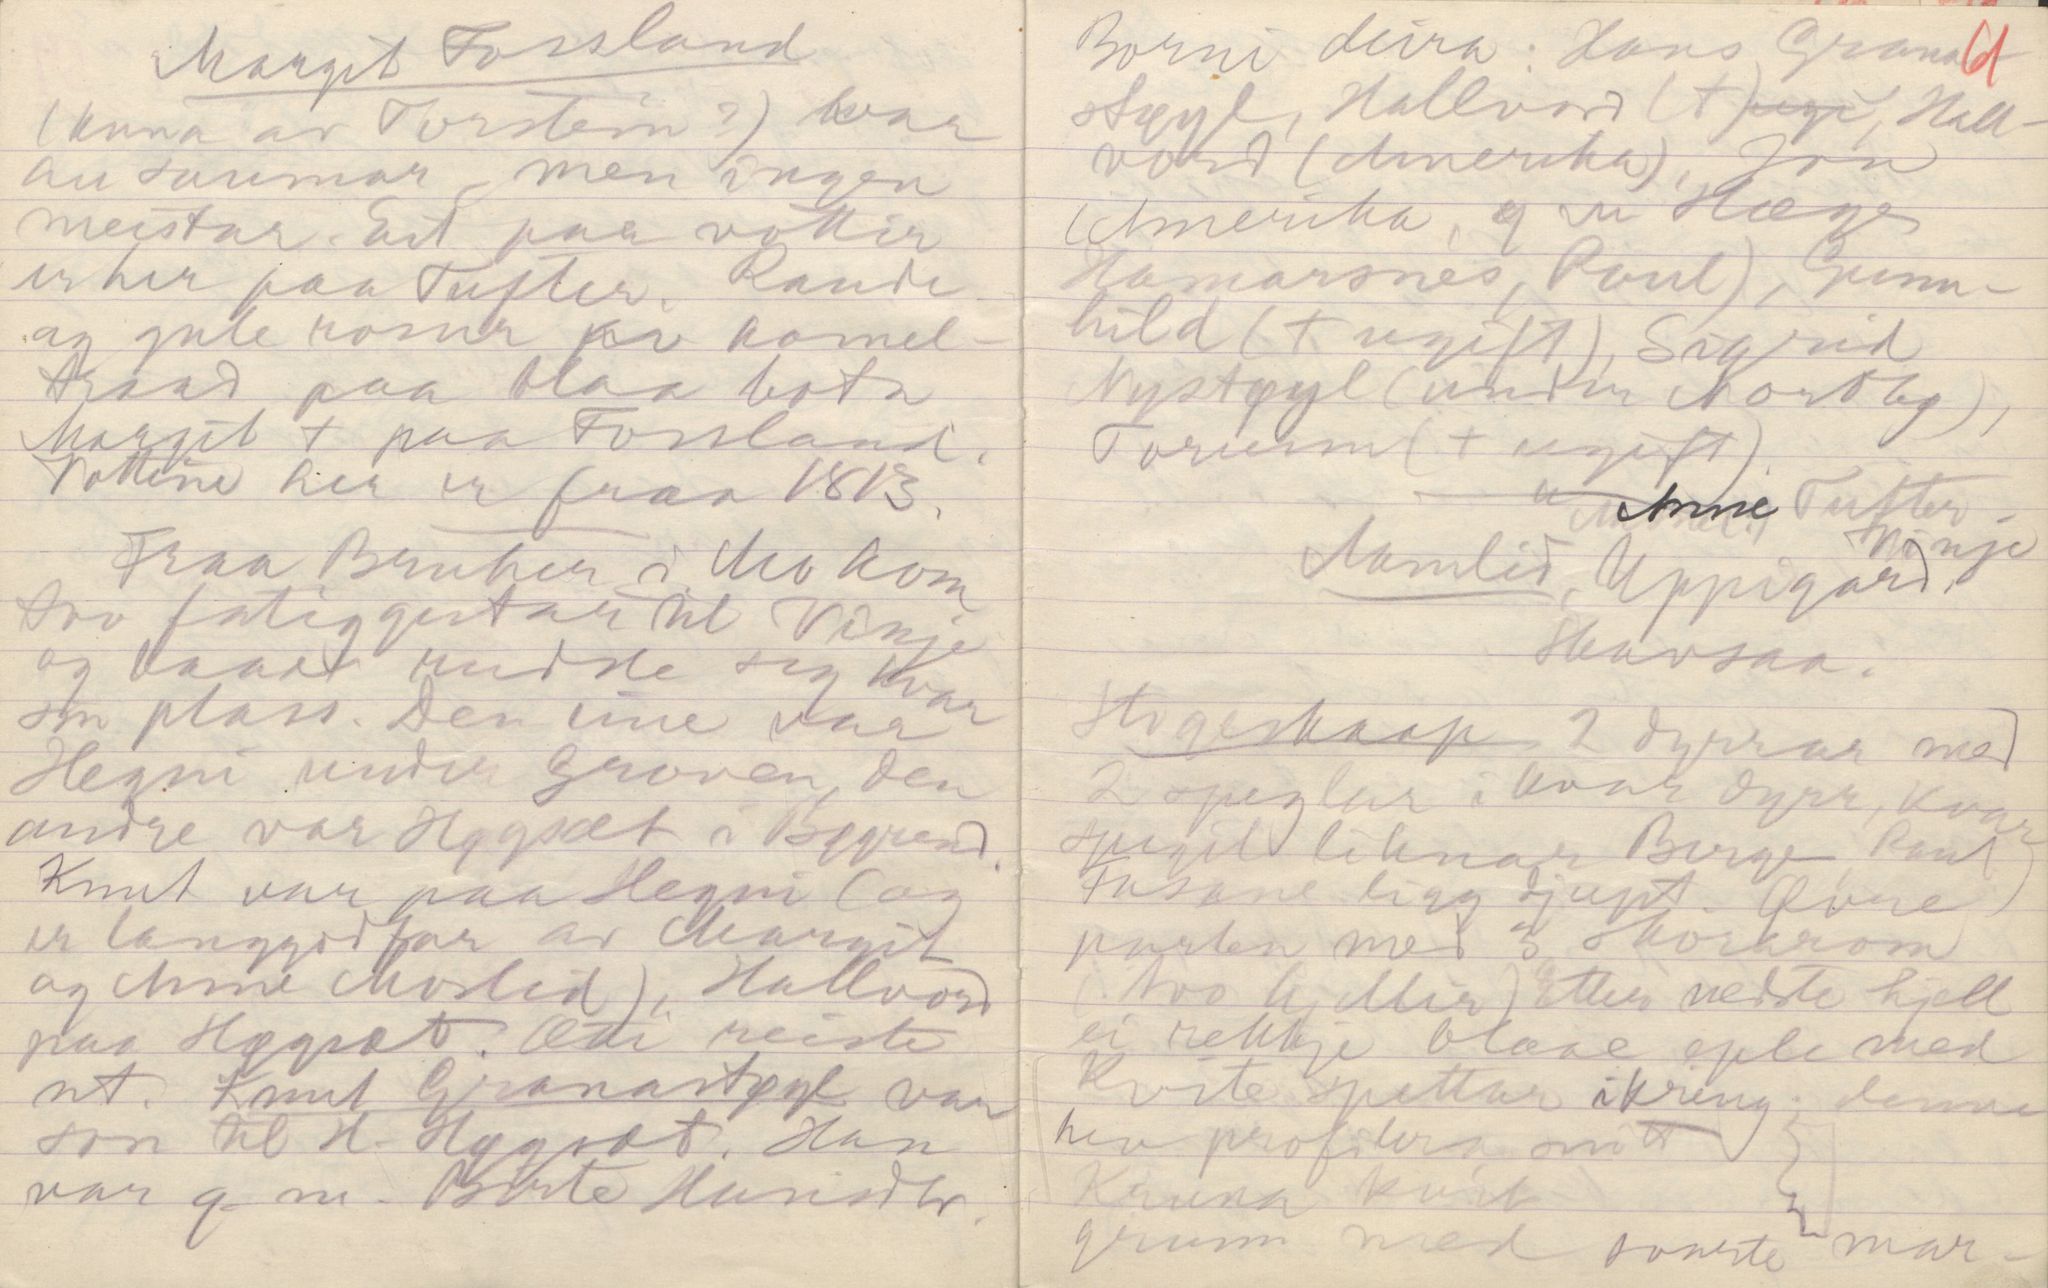 Margit Fossland
(kona av Torstein?) var
au saumar, men ingen
meistar. Eit par vottir
er her paa Tufter. Raude
og gule rosur på kamel-
traad paa blaa botn
Margit + paa Fossland.
Vottine her er fraa 1813.
Fraa Bruhei i Mo kom
tvo fatiggestar til Vinje
og baae rudde seg kvar
sin plass. Den eine var
Hegni under Groven, den
andre var Høgsæt i Bøgrend.
Knut var paa Hegni (og
er langgodfar av Margit
og Anne Moslid), Hallvord
paa Høgsæt. Ætti reiste
ut. Knut Granastøyl var
son til H. Høgsæt. Han
var g. m. Birte Hansdtr.
61
Borni deira: Hans Grana-
støyl, Hallvord (+), Hall-
vord (Amerika), Jon
(Amerika, g m Hæge
Hamarsnes, Poul), Gunn-
hild (+ ugift), Sigrid
Nystøyl (under Nordbø),
Torienn (+ ugift).
Anne Tufter
Vinje
Aamlid, Uppigard,
Skavsaa.
Stogeskaap 2 dyrrar med
2 speglar i kvar dyrr, kvar
spegil liknar Berge, Raul
Fasane ligg djupt. Øvre
parten med 3 skorarom
(tvo hjellir) Etter nedste hjell
ei rekkje blaae eple med
kvite spettar ikring; denne
hev profilera snitt
Kruna kvit
grunn med svarte mar-